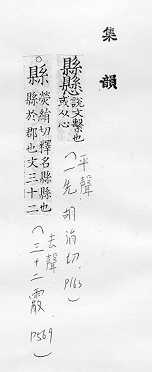 集韻
縣懸
說文繫也
或从心
(平聲
一先 胡涓切. P163)
。縣
熒絹切釋名縣縣也
縣於郡也文三十二
(去聲
三十二霰. P569)